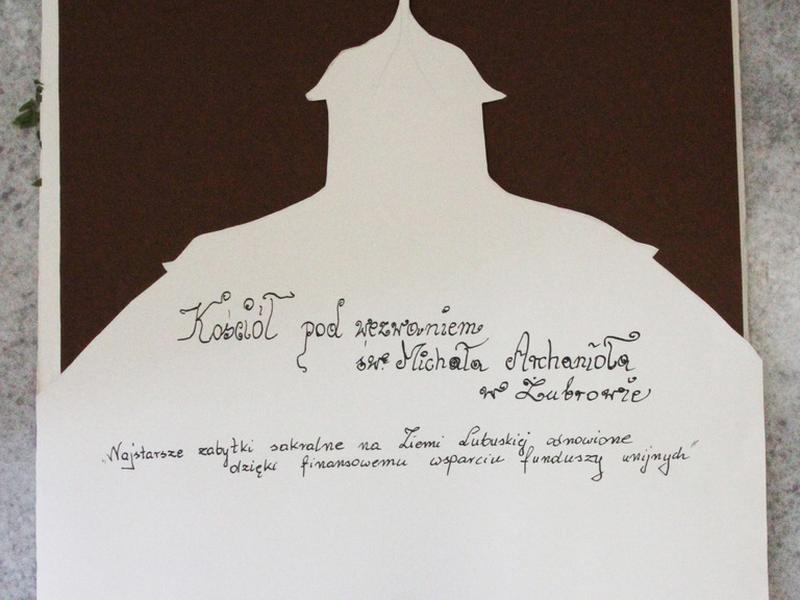 Kościół pod wezwaniem
św. Michała Archanioła
w Żubrowie
„Najstarsze zabytki sakralne na Ziemi Lubuskiej odnowione
dzięki finansowemu wsparciu funduszy unijnych”